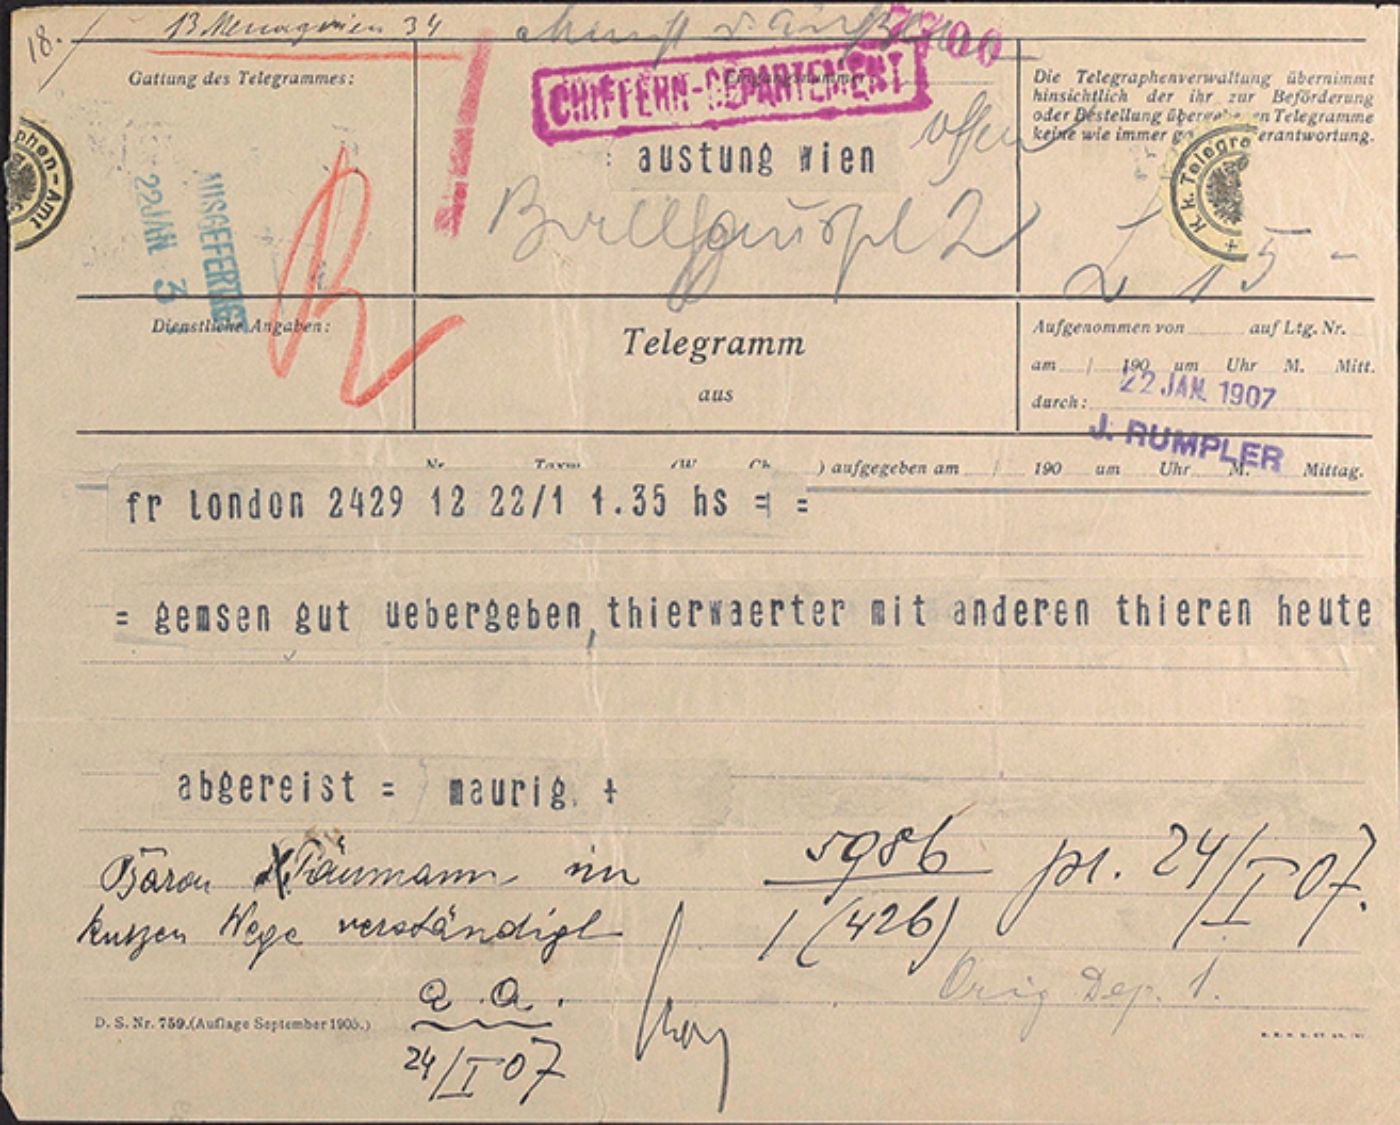 18.
13 Menagerien 34
7700
Gattung des Telegrammes:
CHIFFERN-DEPARTEMENT
Eingangsnummer:
Die Telegraphenverwaltung übernimmt
hinsichtlich der ihr zur Beförderung
oder Bestellung Telegramme
keine wie immer
offen
: austung wien
Ballhauspl 2
L 15 -
phen-Amt
K. k. Telegra
AUSGEFERTIGT
22 JAN. 3
Dienstliche Angaben:
Telegramm
aus
Aufgenommen von auf Ltg. Nr.
am / 190 um Uhr M. Mitt.
22 JAN. 1907
durch:
J. RUMPLER
Nr. Taxw. (W. Ch. ) aufgegeben am / 190 um Uhr M. Mittag.
fr london 2429 12 22/1 1.35 hs = =
= gemsen gut uebergeben, thierwaerter mit anderen thieren heute
abgereist = maurig. +
Baron im
kurzen Wege verständigt
a. a.
24/I 07
5986
1 (426)
pr. 24/I 07.
Orig Dep. 1.
D. S. Nr. 759. (Auflage September 1905.)